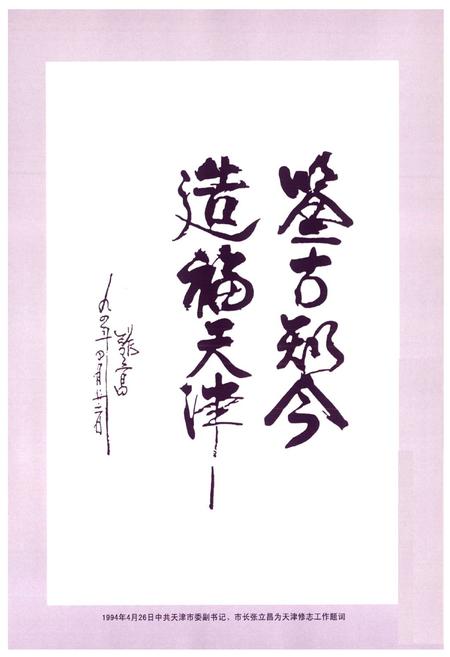 鉴古知今
造福天津
张立昌
九四年四月廿
1994年4月26日中共天津市委副书记、市长张立昌为天津修志工作题词